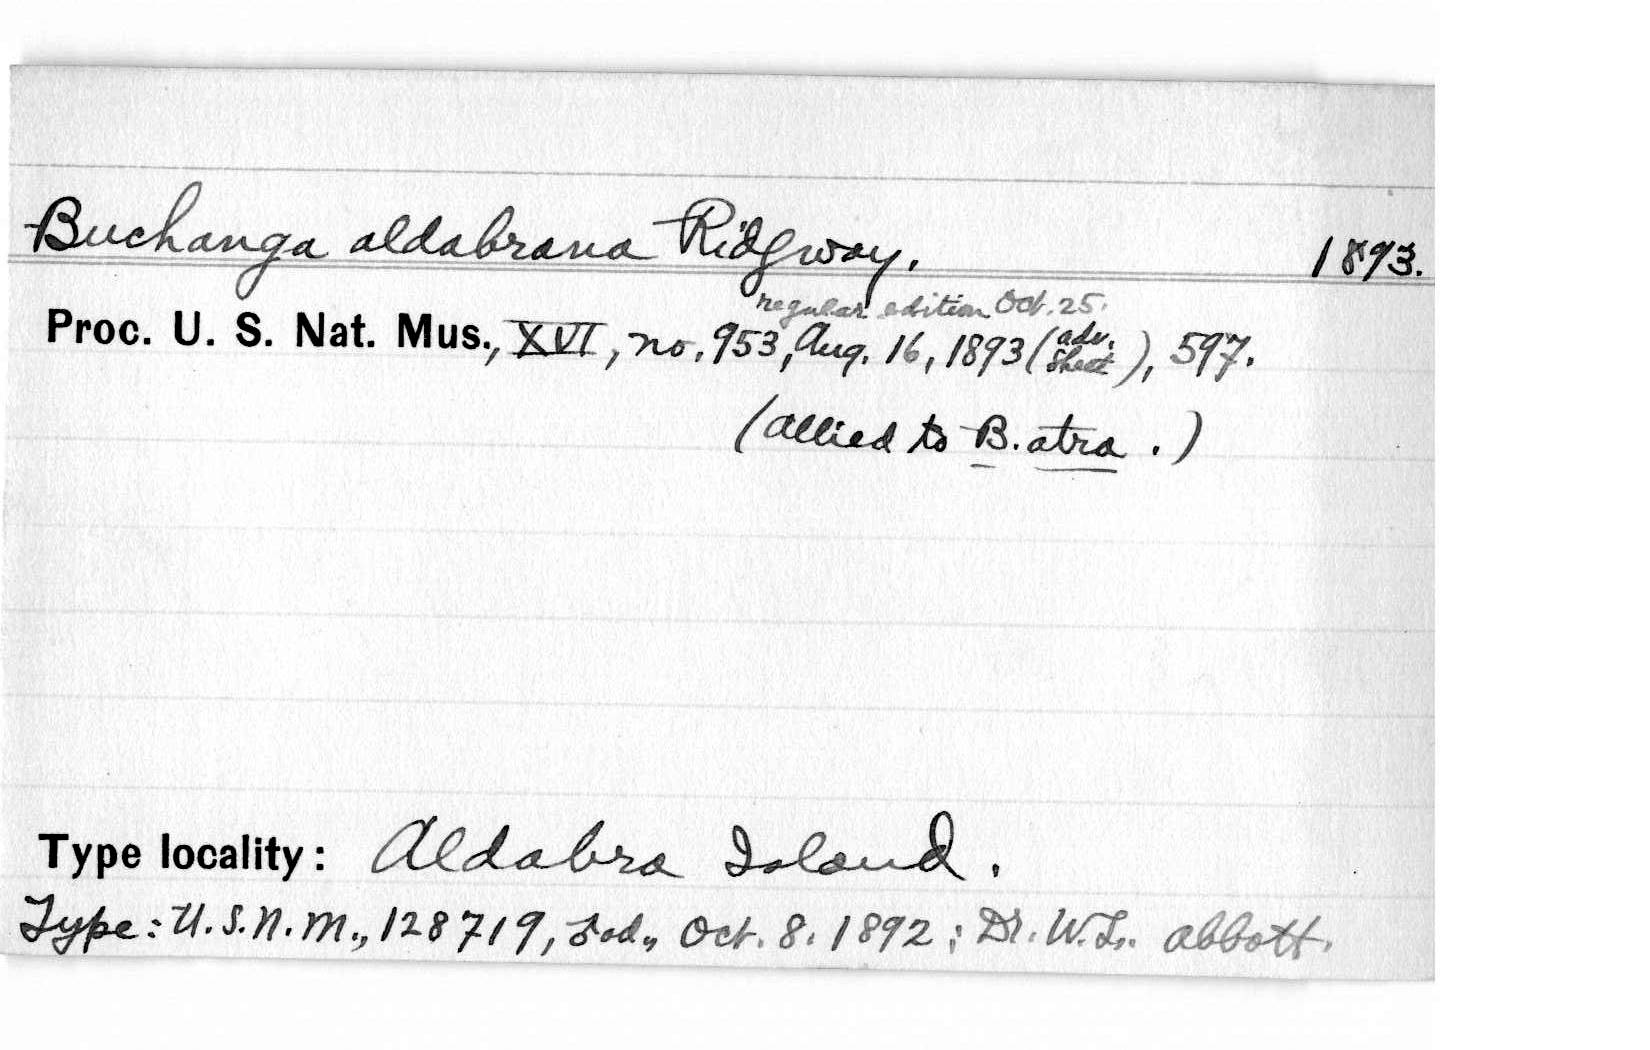 Buchanga aldabrana Ridgway. 1893.
regular edition Oct. 25.
Proc. U. S. Nat. Mus., XVI, no. 953, Aug. 16, 1893 (adv. sheet), 597.
(allied to B. atra.)
Type locality: Aldabra Island.
Type: U.S.N.M., 128719, ad., Oct. 8. 1892; Dr. W. L. Abbott.